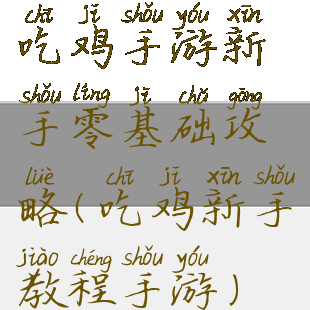 chī jī shǒu yóu xīn
吃鸡手游新
shǒu líng jī chǔ gōng
手零基础攻
lüè chī jī xīn shǒu
略(吃鸡新手
jiào chéng shǒu yóu
教程手游)